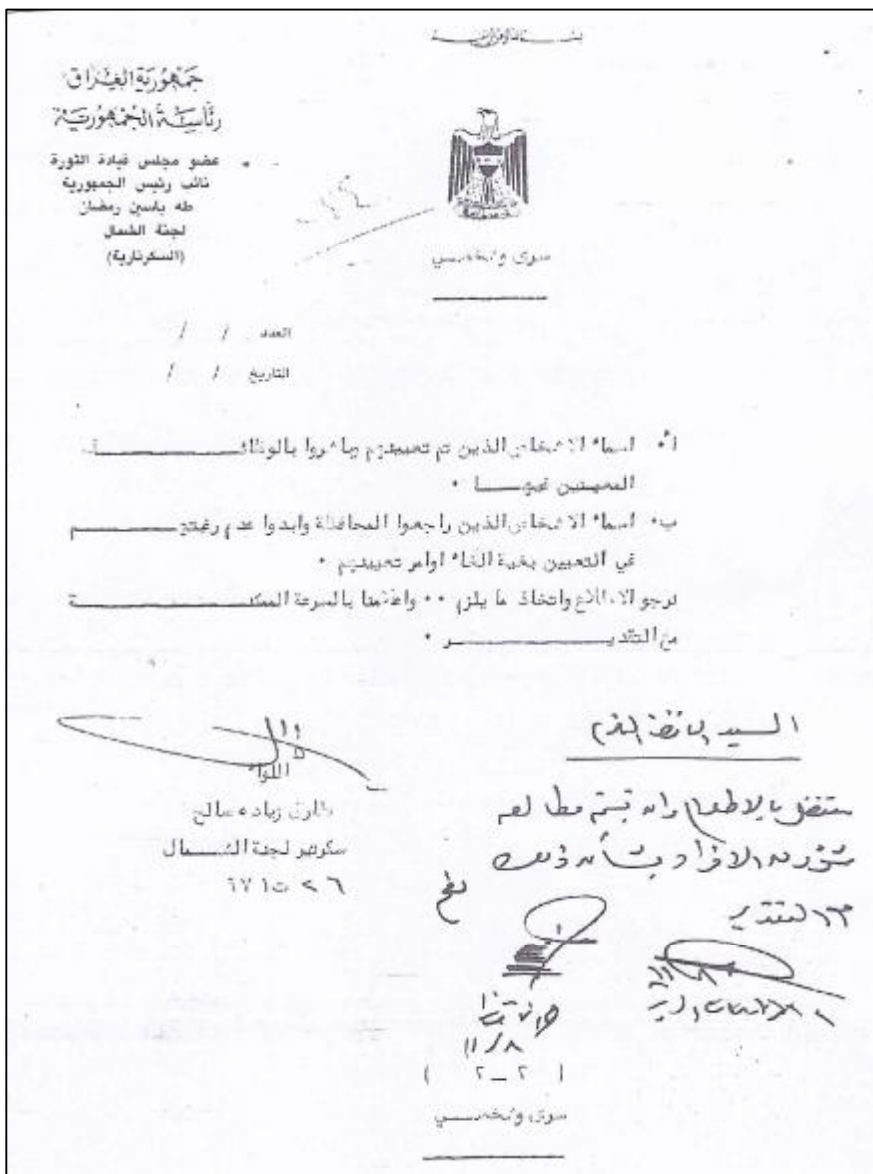 جمهورية العراق
رئاسة الجمهورية
عضو مجلس قيادة الثورة
نائب رئيس الجمهورية
طه ياسين رمضان
لجنة الشمال
(السكرتارية)
سري وشخصي
العدد / /
التاريخ / /
أ٠ اسماء الاشخاص الذين تم تعيينهم وباشروا بالوظائف
المعينين نحوها ٠
ب٠ اسماء الاشخاص الذين راجعوا المحافظة وابدوا عدم رغبتهم
في التعيين بغية الغاء اوامر تعيينهم ٠
نرجو الاطلاع واتخاذ ما يلزم ٠٠ واعلامنا بالسرعة الممكنة
مع التقدير ٠
اللواء
طارق زياده صالح
سكرتير لجنة الشمال
٢٦ ت١
السيد المحافظ المحترم
بالاطلاع
الافراد بشأن ذلك
مع التقدير
١١/٨
( ٢ـ٢ )
سري وشخصي